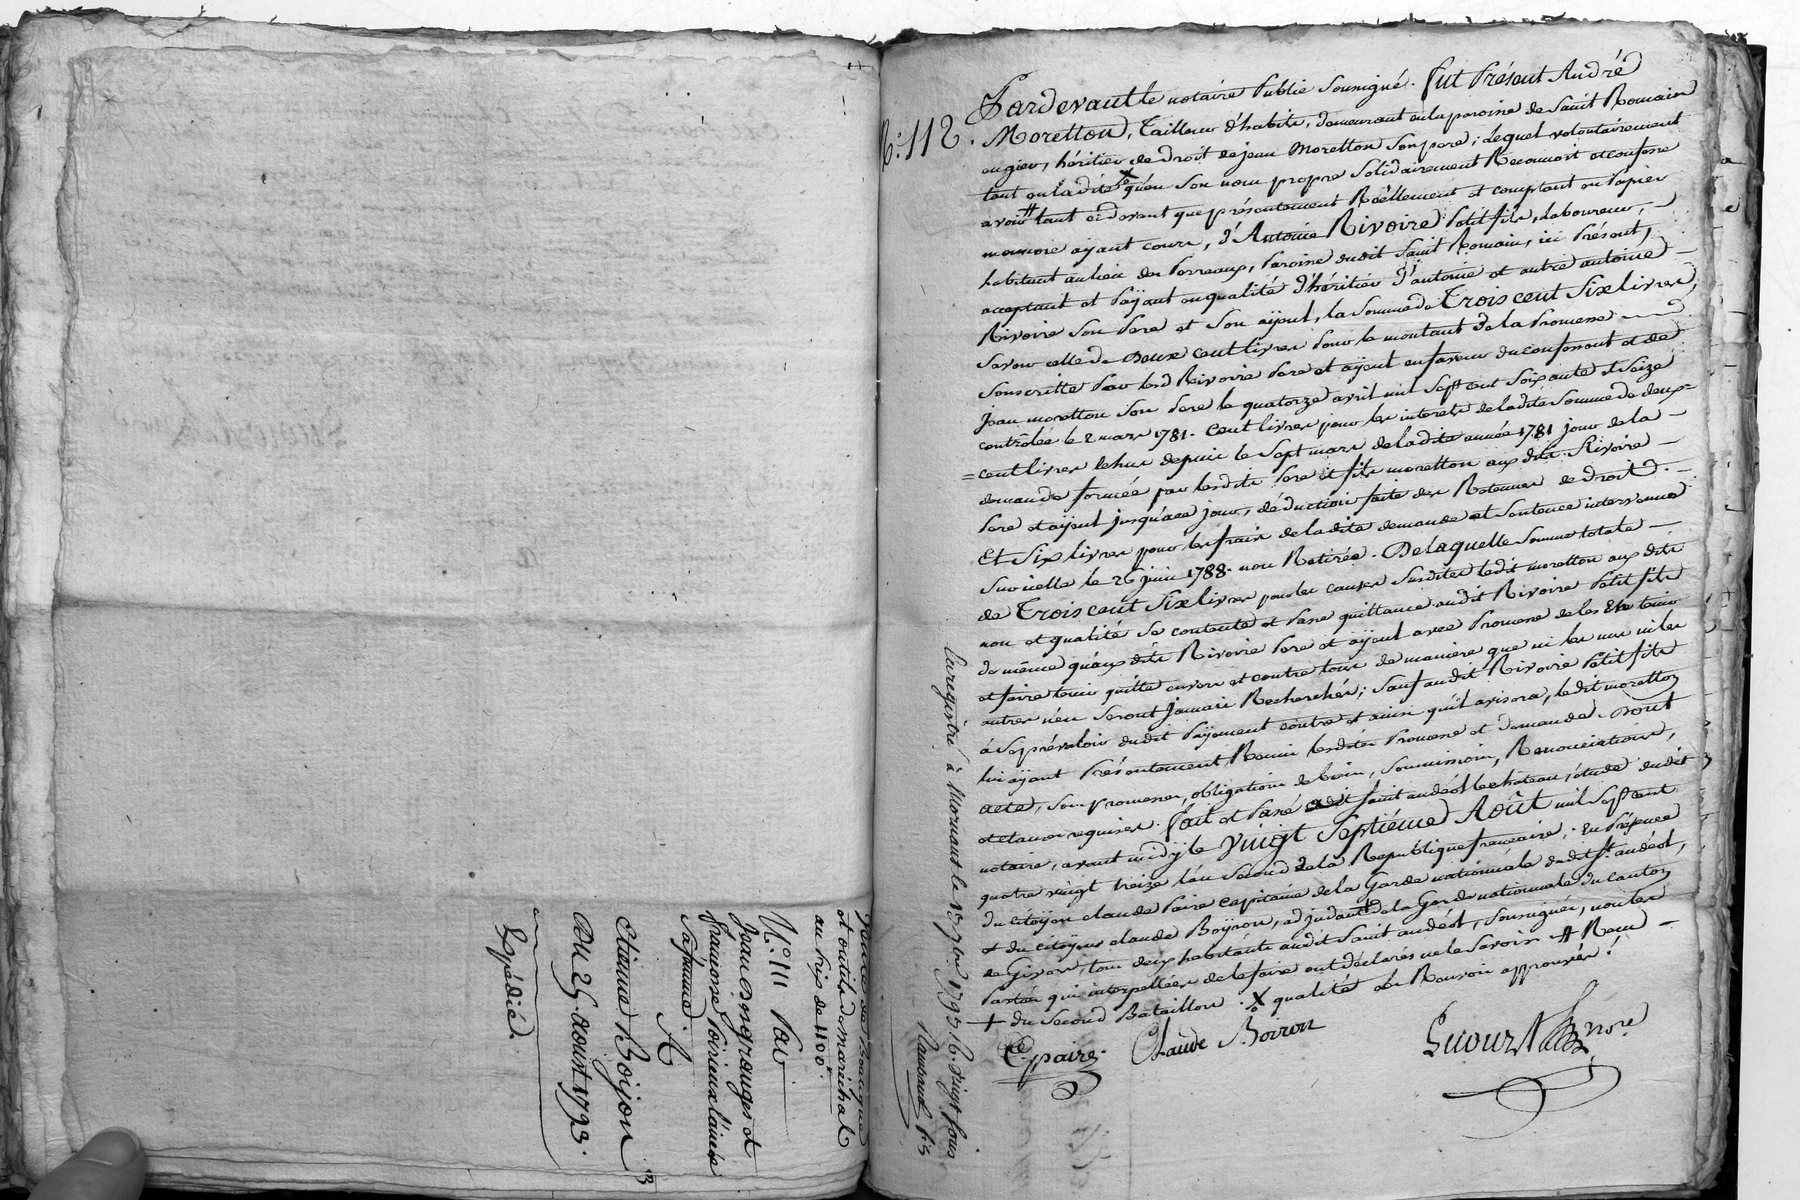 Vente de Boutique
et outils de maréchal
au prix de 1100#.
N.° 111 Par
Jean Desgranges et
françoise Poirieux l'ainée
Sa femme.
A
Etienne Boijon
Du 25. aoust 1793.
Expédié.
N.° 112.
Pardevant le notaire Public Soussigné. fut Présent André
Moretton, Tailleur d'habits, demeurant en la paroisse de Saint Romain
en gier, héritier de droit de jean Moretton Son pere; lequel volontairement
tant en la dite X qu'en Son nom propre Solidairement Reconnoit et confesse
avoir # tant cidevant que présentement Réellement et comptant en Papier
monnoie ayant cours, d'Antoine Rivoire Petit fils, laboureur, —
habitant au lieu des Porreaux, Paroisse dudit Saint Romain, ici Présent,
acceptant et Payant en qualité d'héritier d'antoine et autre antoine —
Rivoire Son Pere et Son ayeul, la Somme de Trois cent Six livres,
Savoir celle de Deux cent livres Pour le montant de la Promesse —
Souscritte Par lesd. Rivoire Pere et ayeul en faveur du confessant et de
Jean moretton Son Pere le quatorze avril mil Sept cent Soixante et Seize
contrôlée le 2 mars 1781. Cent livres pour les interets de la dite Somme de deux
= cent livres échus depuis le Sept mars de la dite année 1781 jour de la —
demande formée par lesdits Pere et fils moretton aux dits Rivoire —
Pere et ayeul jusqu'à ce jour, déduction faite des Retenues de droit. —
Et Six livres pour les frais de la dite demande et Sentence intervenue
Sur icelle le 26 juin 1788. non Retirée. De laquelle Somme totale —
de Trois cent Six livres pour les causes Susdites ledit moretton aux dits
nom et qualité Se contente et Passe quittance audit Rivoire Petit fils
de même qu'aux dits Rivoire Pere et ayeul avec Promesse de les En tenir
et faire tenir quitte envers et contre tous de maniere que ni les uns ni les
autres n'en Seront Jamais Recherchés; Sauf audit Rivoire Petit fils
à Se prévaloir dudit Payement contre et ainsi qu'il avisera, ledit moretton
lui ayant Présentement Remis lesdites Promesse et demande. Dont
acte, Sous promesses, obligations de biens, Soumissions, Renonciations,
et clauses requises. fait et Passé audit Saint andéol le chateau, étude dudit
notaire, avant midy le Vingt Septiéme Août mil Sept cent
quatre vingt treize l'an Second de la Republique francaise; En Présence
du citoyen claude Paire capitaine de la Garde nationnale dudit St. andéol,
et du citoyen claude Boyron, adjudant + de la Garde nationnale du canton
de Givors, tous deux habitants audit Saint andéol, Soussignés, non les
Parties qui interpellées de le faire ont déclarés ne le Savoir # Recu —
+ du Second Bataillon. X qualité ces Renvois approuvés.
Cpaire. Claude Boiron
Enregistré à Mornant le 1er 7bre. 1793. R. vingt sous